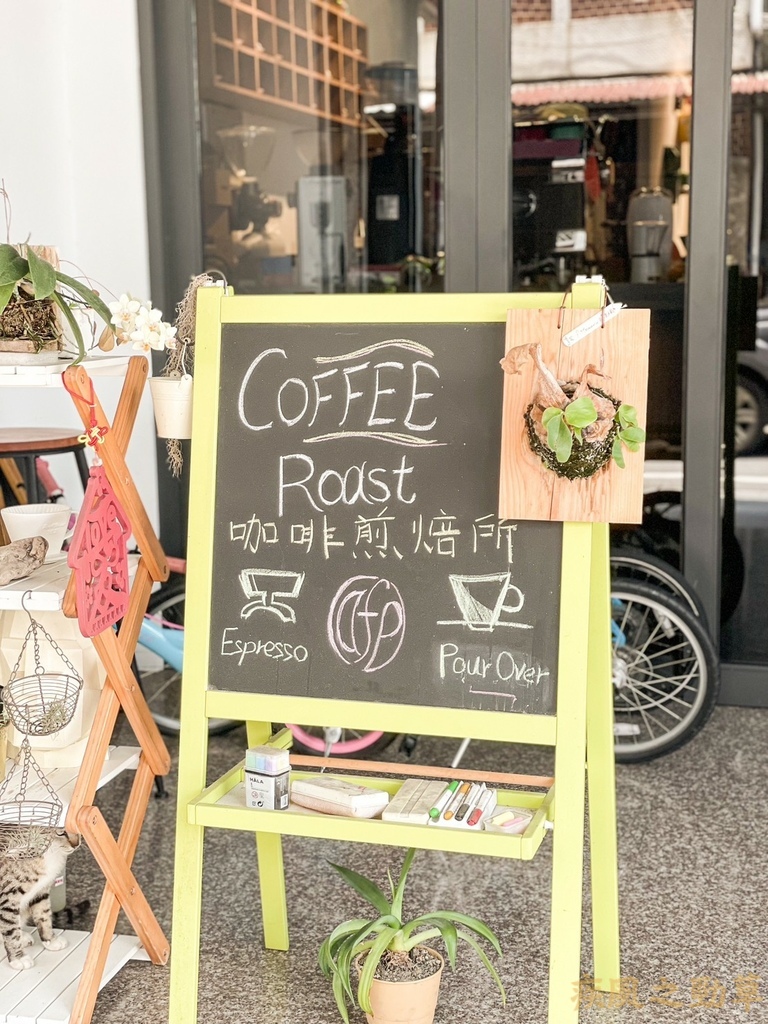 COFFEE
Roast
咖啡煎焙所
Espresso
Pour Over
MALA